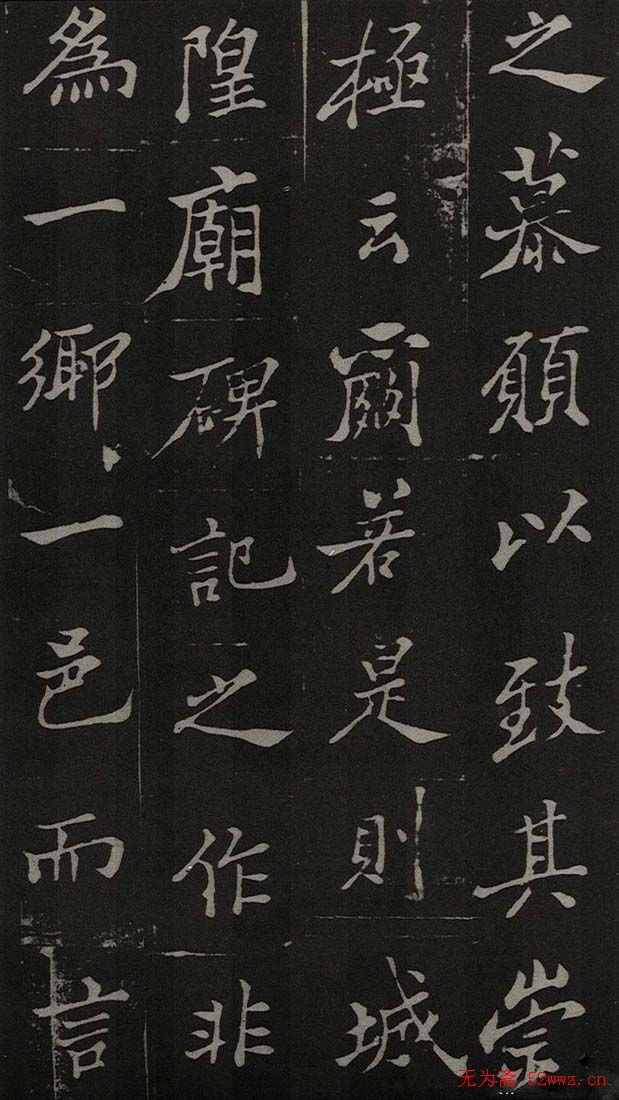 之慕願以致其崇
極云爾若是則城
隍廟碑記之作非
為一鄉一邑而言
无为斋 52wwz.cn